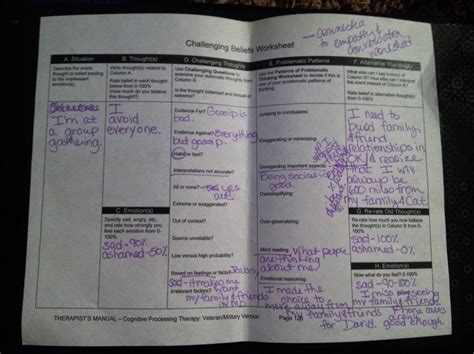 Challenging Beliefs Worksheet
connected
to empathy &
worksheet
A. Situation
Describe the event, thought or belief leading to the unpleasant emotion(s).
I'm at
a group
gathering.
B. Thought(s)
Write thought(s) related to Column A.
Rate belief in each thought below from 0-100%
(How much do you believe this thought?)
I
avoid
everyone.
C. Emotion(s)
Specify sad, angry, etc., and rate how strongly you feel each emotion from 0-100%
sad-90%
ashamed-50%
D. Challenging Thoughts
Use Challenging Questions to examine your automatic thought from Column B.
Is the thought balanced and factual or extreme?
Evidence For? Gossip is
bad.
Evidence Against? Everything
but gossip.
Habit or fact?
Interpretations not accurate?
All or none? yes
Extreme or exaggerated?
Out of context?
Source unreliable?
Low versus high probability?
Based on feelings or facts?
sad-it makes me
my family & friends
E. Problematic Patterns
Use the Patterns of Problematic Thinking Worksheet to decide if this is one of your problematic patterns of thinking.
Jumping to conclusions:
Exaggerating or minimizing:
Disregarding important aspects:
Being social is
good.
Oversimplifying:
Over-generalizing:
Mind reading: What people
are thinking
about me.
Emotional reasoning:
I made the
choice to
move away from
my family & friends
for David.
F. Alternative Thought(s)
What else can I say instead of Column B?
How else can I interpret the event instead of Column B?
Rate belief in alternative thought(s) from 0-100%
I need to
build family
& friend
relationships in
OK & realize
that I will
always be
600 miles from
my family & Cat.
G. Re-rate Old Thought(s)
Re-rate how much you now believe the thought(s) in Column B from 0-100%
sad-100%
ashamed-0%
H. Emotion(s)
Now what do you feel? 0-100%
I miss seeing
my family & friends
good enough.
THERAPIST'S MANUAL – Cognitive Processing Therapy: Veteran/Military Version